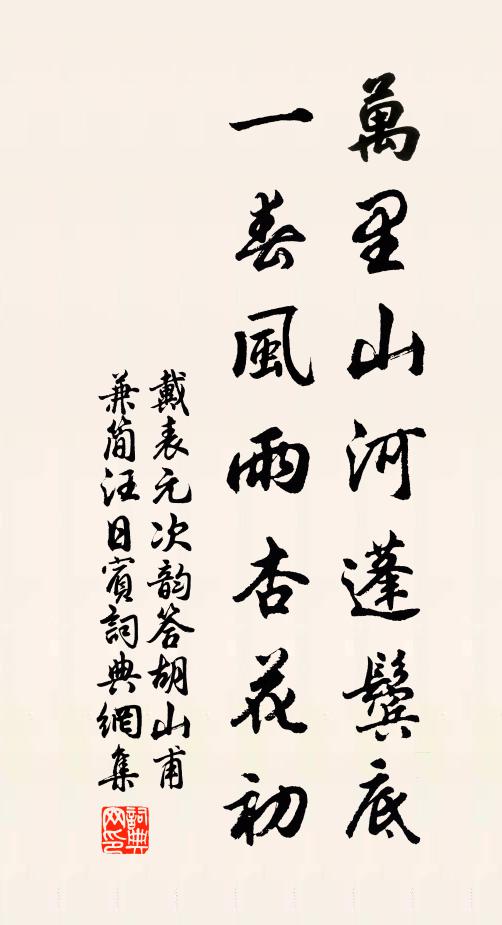 萬里山河蓬鬢底
一春風雨杏花初
戴表元次韵答胡山甫
兼简汪日賓詞典網集
詞典網印